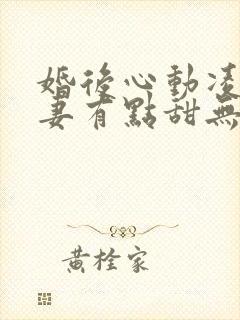 婚後心動凌
妻有點甜無
黃栓家